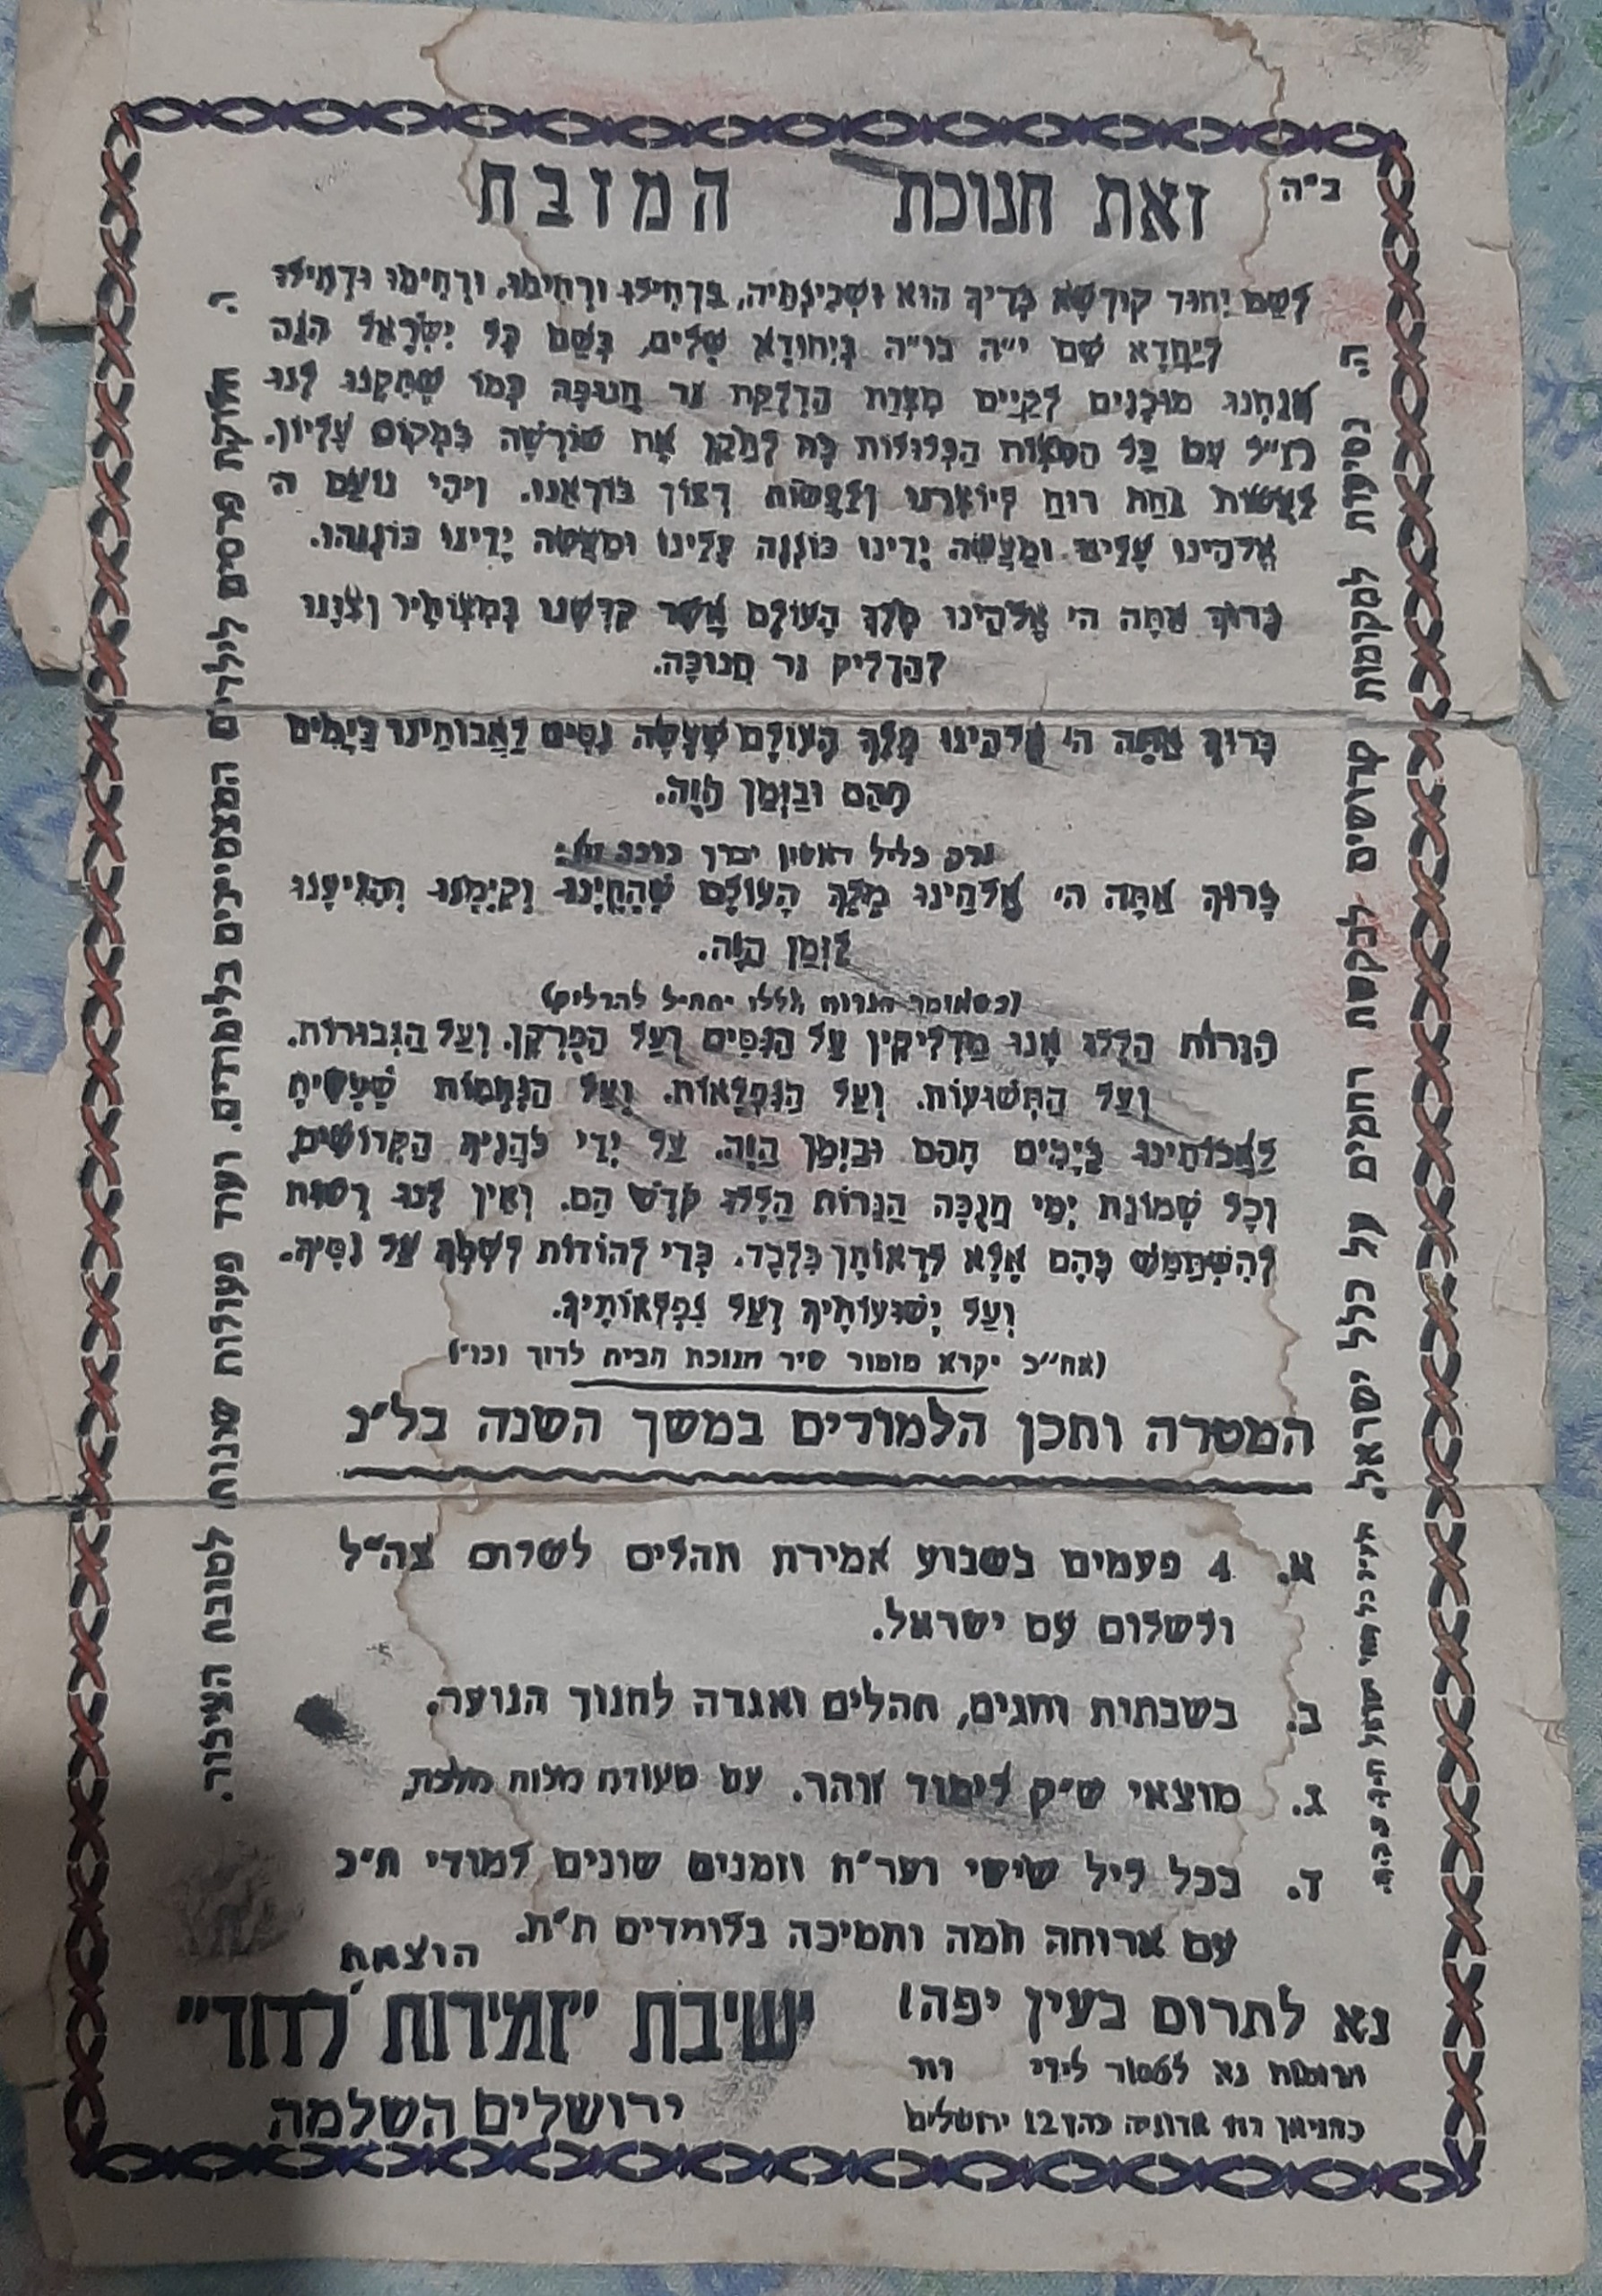 ב"ה
זאת חנוכת המזבח
לְשֵׁם יִחוּד קוּדְשָׁא בְּרִיךְ הוּא וּשְׁכִינְתֵּיהּ, בִּדְחִילוּ וּרְחִימוּ, וּרְחִימוּ וּדְחִילוּ
לְיַחֲדָא שֵׁם י"ה בו"ה בְּיִחוּדָא שְׁלִים, בְּשֵׁם כָּל יִשְׂרָאֵל הִנֵּה
אֲנַחְנוּ מוּכָנִים לְקַיֵּים מִצְוַת הַדְלָקַת נר חֲנוּכָּה כְּמוֹ שֶׁתִּקְּנוּ לָנוּ
רז"ל עִם כָּל הַמִּצְוֹת הַכְּלוּלוֹת בָּהּ לְתַקֵּן אֶת שׁוֹרְשָׁהּ בְּמָקוֹם עֶלְיוֹן.
לַעֲשׂוֹת נַחַת רוּחַ לְיוֹצְרֵנוּ וְלַעֲשׂוֹת רְצוֹן בּוֹרְאֵנוּ. וִיהִי נוֹעַם ה'
אֱלֹהֵינוּ עָלֵינוּ וּמַעֲשֵׂה יָדֵינוּ כּוֹנְנָה עָלֵינוּ וּמַעֲשֵׂה יָדֵינוּ כּוֹנְנֵהוּ.
בָּרוּךְ אַתָּה ה' אֱלֹהֵינוּ מֶלֶךְ הָעוֹלָם אֲשֶׁר קִדְּשָׁנוּ בְּמִצְוֹתָיו וְצִוָּנוּ
לְהַדְלִיק נר חֲנוּכָּה.
בָּרוּךְ אַתָּה ה' אֱלֹהֵינוּ מֶלֶךְ הָעוֹלָם שֶׁעָשָׂה נִסִּים לַאֲבוֹתֵינוּ בַּיָּמִים
הָהֵם וּבַזְּמַן הַזֶּה.
ורק בליל ראשון יברך ברכה זו:
בָּרוּךְ אַתָּה ה' אֱלֹהֵינוּ מֶלֶךְ הָעוֹלָם שֶׁהֶחֱיָנוּ וְקִיְּמָנוּ וְהִגִּיעָנוּ
לַזְּמַן הַזֶּה.
(כשאומר הנרות הללו יתחיל להדליק)
הַנֵּרוֹת הַלָּלוּ אָנוּ מַדְלִיקִין עַל הַנִּסִּים וְעַל הַפֻּרְקָן. וְעַל הַגְּבוּרוֹת.
וְעַל הַתְּשׁוּעוֹת. וְעַל הַנִּפְלָאוֹת. וְעַל הַנֶּחָמוֹת שֶׁעָשִׂיתָ
לַאֲבוֹתֵינוּ בַּיָּמִים הָהֵם וּבַזְּמַן הַזֶּה. עַל יְדֵי כֹּהֲנֶיךָ הַקְּדוֹשִׁים
וְכָל שְׁמוֹנַת יְמֵי חֲנֻכָּה הַנֵּרוֹת הַלָּלוּ קֹדֶשׁ הֵם. וְאֵין לָנוּ רְשׁוּת
לְהִשְׁתַּמֵּשׁ בָּהֶם אֶלָּא לִרְאוֹתָן בִּלְבָד. כְּדֵי לְהוֹדוֹת לִשְׁמֶךָ עַל נִסֶּיךָ.
וְעַל יְשׁוּעוֹתֶיךָ וְעַל נִפְלְאוֹתֶיךָ.
(אח"כ יקרא מזמור שיר חנוכת הבית לדוד וכו')
המטרה ותכן הלמודים במשך השנה בל"נ
א. 4 פעמים בשבוע אמירת תהלים לשלום צה"ל
ולשלום עם ישראל.
ב. בשבתות וחגים, תהלים ואגדה לחנוך הנוער.
ג. מוצאי ש"ק לימוד זוהר. עם סעודת מלוה מלכה.
ד. בכל ליל שישי וער"ח וזמנים שונים למודי ת"כ
עם ארוחה חמה ותמיכה בלומדים ת"ת.
ה. נסיעות למקומות קדושים לבקשת רחמים על כלל ישראל.
ו. חלוקת פרסים לילדים המצטיינים בלימודים. ועוד פעולות שונות לטובת הציבור.
נא לתרום בעין יפה!
תרומות נא למסור לידי דוד
כהנאמן רח' אדוניה כהן 12 ירושלים
הוצאת
ישיבת "זמירות לדוד"
ירושלים השלמה